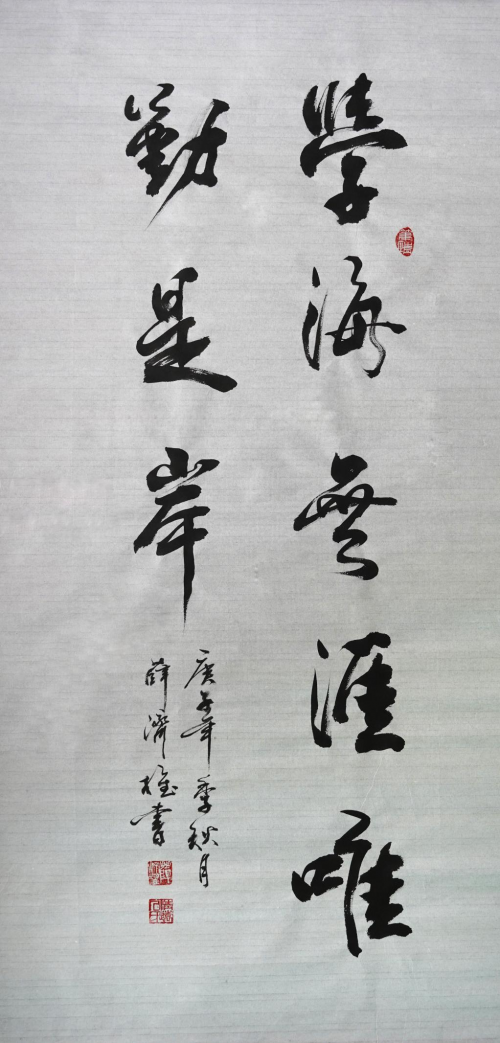 學海無涯唯
勤是岸
庚子年季秋月
薛濟權書